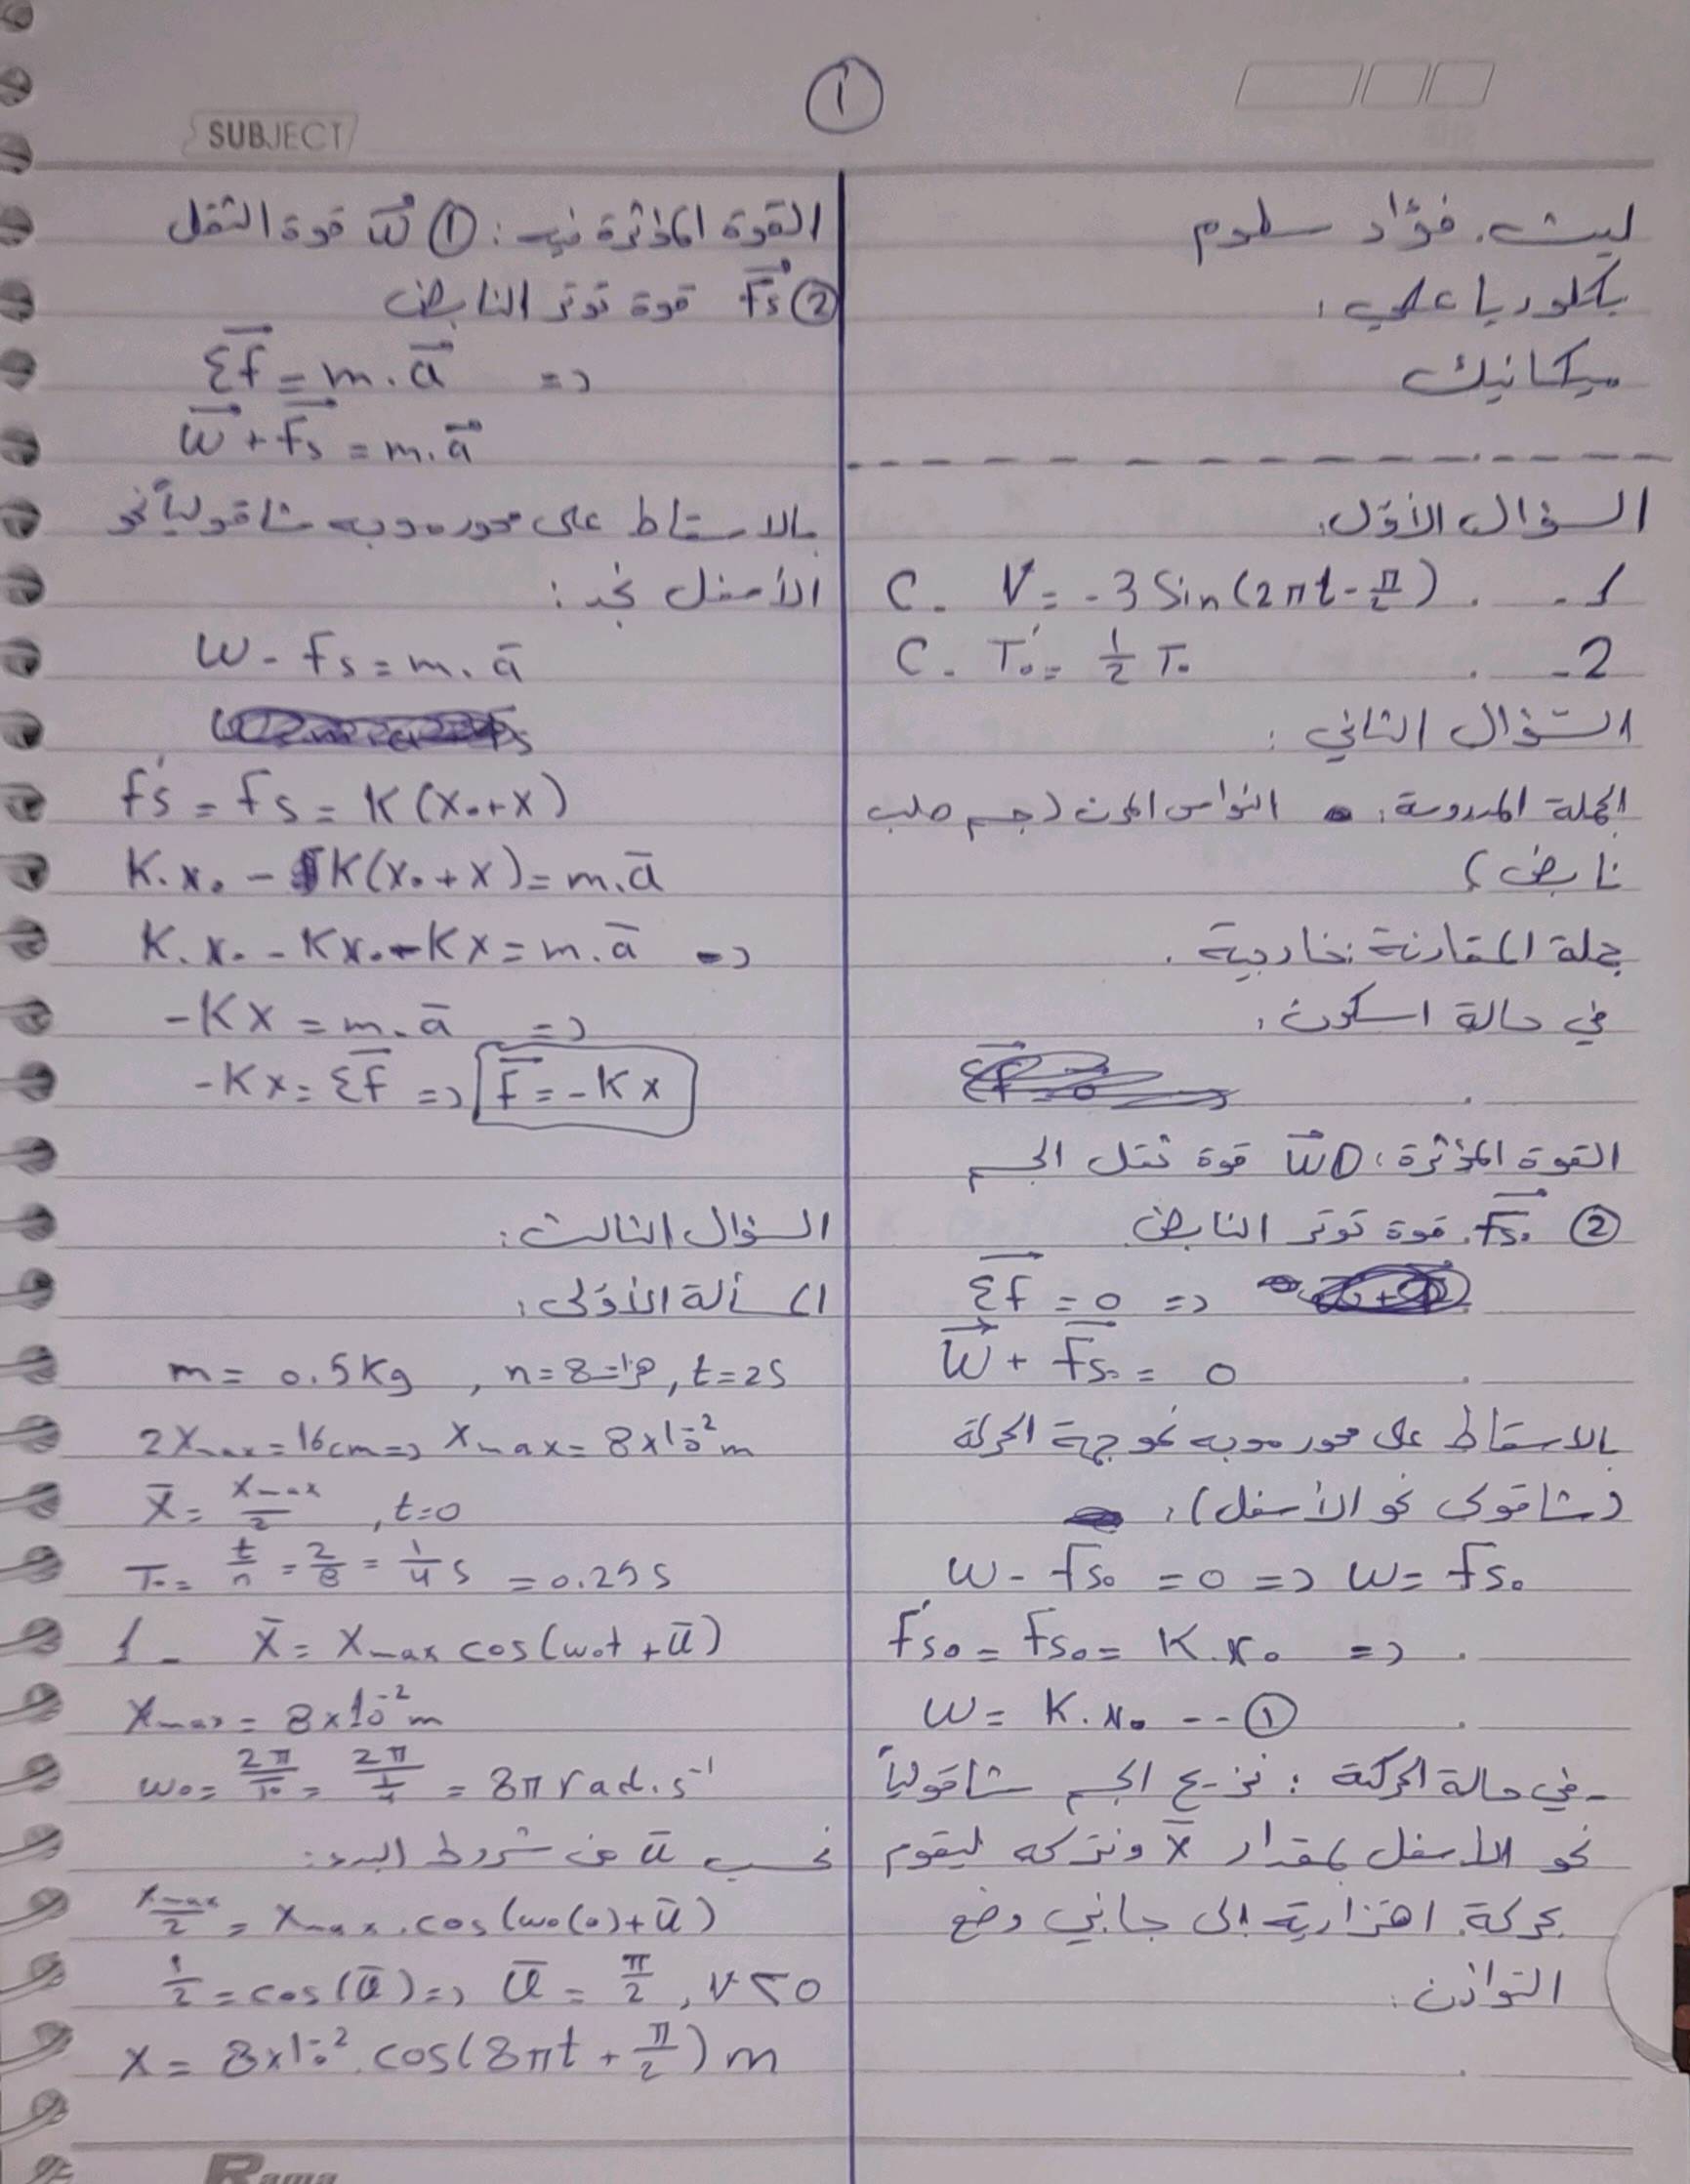 SUBJECT
١
ليث. فؤاد سلوم
بكلوريا علمي:
ميكانيك
السؤال الأوّل:
1- C. V = -3 Sin(2πt - π/2)
2- C. T₀' = 1/2 T₀
السّؤال الثاني:
الجملة المدروسة: النواس المرن (جسم صلب
نابض)
جملة المقارنة: خارجية.
في حالة السكون:
القوة المؤثرة: ① W⃗ قوة ثقل الجسم
② Fs₀⃗ قوة توتر النابض
ΣF⃗ = 0 =>
W⃗ + Fs₀⃗ = 0
بالاسقاط على محور موجه نحو جهة الحركة
(شاقولي نحو الأسفل):
W - Fs₀ = 0 => W = Fs₀
F's₀ = Fs₀ = K.x₀ =>
W = K.x₀ -- ①
- في حالة الحركة: نزيح الجسم شاقولياً
نحو الأسفل بمقدار x̄ ونتركه ليقوم
بحركة اهتزازية إلى جانبي وضع
التوازن.
القوة المؤثرة فيه: ① W⃗ قوة الثقل
② Fs⃗ قوة توتر النابض
ΣF⃗ = m.a⃗ =>
W⃗ + Fs⃗ = m.a⃗
بالاسقاط على محور موجه شاقولياً نحو
الأسفل نجد:
W - Fs = m.ā
F's = Fs = K(x₀+x)
K.x₀ - K(x₀+x) = m.ā
K.x₀ - Kx₀ - Kx = m.ā =>
-Kx = m.ā =>
-Kx = ΣF̄ => F̄ = -Kx
السؤال الثالث:
المسألة الأوّلى:
m = 0.5Kg , n = 8 , t = 2s
2Xmax = 16cm => Xmax = 8×10⁻²m
X̄ = Xmax/2 , t=0
T₀ = t/n = 2/8 = 1/4 s = 0.25s
1- X̄ = Xmax cos(ω₀t + φ̄)
Xmax = 8×10⁻²m
ω₀ = 2π/T₀ = 2π/(1/4) = 8π rad.s⁻¹
نحسب φ̄ من شروط البدء:
Xmax/2 = Xmax.cos(ω₀(0)+φ̄)
1/2 = cos(φ̄) => φ̄ = π/2 , v<0
x = 8×10⁻².cos(8πt + π/2) m
Rama